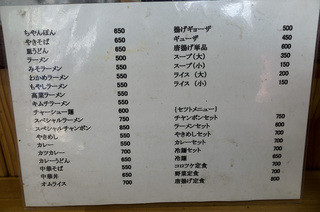 ちゃんぽん 650
やきそば 650
皿うどん 650
ラーメン 500
みそラーメン 550
わかめラーメン 550
もやしラーメン 550
高菜ラーメン 550
キムチラーメン 550
チャーシュー麺 600
スペシャルラーメン 750
スペシャルチャンポン 850
やきめし 550
カレー 550
カツカレー 700
カレーうどん 650
中華そば 550
中華丼 650
オムライス 700
揚げギョーザ 500
ギョーザ 450
唐揚げ単品 600
スープ(大) 350
スープ(小) 150
ライス (大) 200
ライス (小) 150
(セツトメニュー)
チヤンポンセット 750
ラーメンセット 600
やきめしセット 650
カレーセット 650
冷麺セット 800
冷麺 650
コロツケ定食 700
野菜定食 700
唐揚げ定食 800